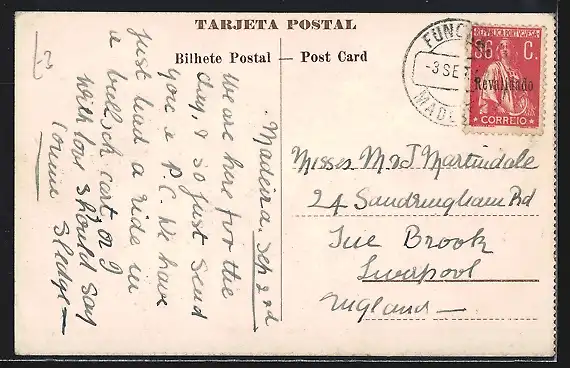 TARJETA POSTAL
Bilhete Postal — Post Card
FUNCHAL
-3 SE
MADE
REPUBLICA PORTUGUESA
96 C.
Revalidado
CORREIO
Madeira. Sep 2nd
We are here for the
day, & so just send
you a P.C. We have
just had a ride in
a bullock cart, or I
should say
Sledge —
With love
Connie
Misses M & J Martindale
24 Sandringham Rd
Tue Brook
Liverpool
England —